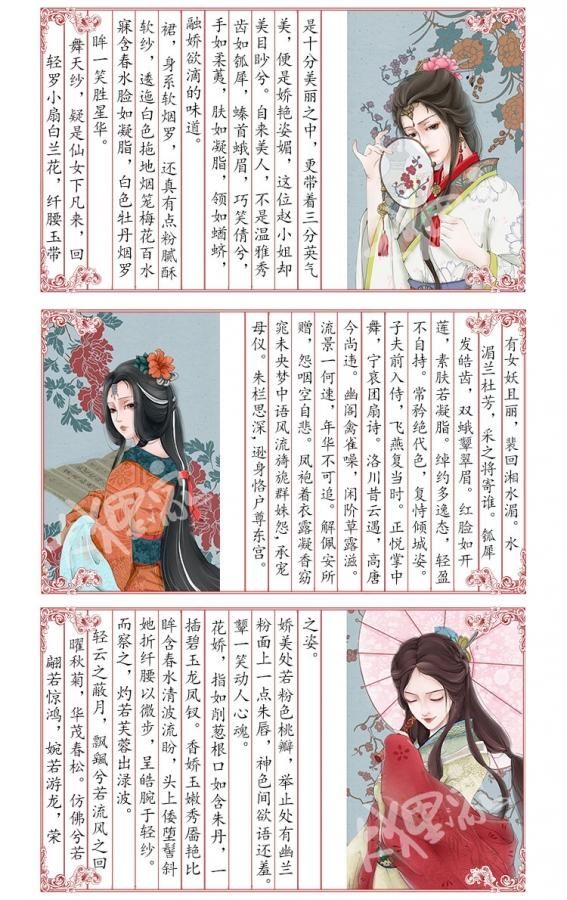 轻罗小扇白兰花，纤腰玉带
舞天纱，疑是仙女下凡来，回
眸一笑胜星华。
寐含春水脸如凝脂，白色牡丹烟罗
软纱，逶迤白色拖地烟笼梅花百水
裙，身系软烟罗，还真有点粉腻酥
融娇欲滴的味道。
手如柔荑，肤如凝脂，领如蝤蛴，
齿如瓠犀，螓首蛾眉，巧笑倩兮，
美目眇兮。自来美人，不是温雅秀
美，便是娇艳姿媚，这位赵小姐却
是十分美丽之中，更带着三分英气
有女妖且丽，裴回湘水湄。水
湄兰杜芳，采之将寄谁。瓠犀
发皓齿，双蛾颦翠眉。红脸如开
莲，素肤若凝脂。绰约多逸态，轻盈
不自持。常矜绝代色，复恃倾城姿。
子夫前入侍，飞燕复当时。正悦掌中
舞，宁哀团扇诗。洛川昔云遇，高唐
今尚违。幽阁禽雀噪，闲阶草露滋。
流景一何速，年华不可追。解佩安所
赠，怨咽空自悲。凤袍着衣露凝香窈
窕未央梦中语风流旖旎群妹怨,承宠
母仪。朱栏思深,逊身恪户尊东宫。
翩若惊鸿，婉若游龙，荣
曜秋菊，华茂春松。仿佛兮若
轻云之蔽月，飘飖兮若流风之回
而察之，灼若芙蓉出渌波。
她折纤腰以微步，呈皓腕于轻纱。
眸含春水清波流盼，头上倭堕髻斜
插碧玉龙凤钗。香娇玉嫩秀靥艳比
花娇，指如削葱根口如含朱丹，一
颦一笑动人心魂。
粉面上一点朱唇，神色间欲语还羞。
娇美处若粉色桃瓣，举止处有幽兰
之姿。